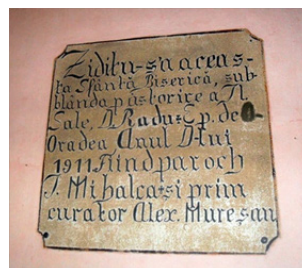 Ziditu-s'a aceas-
ta Sfântă Biserică, sub
blânda păstorire a Il.
Sale, Il. Radu: Ep. de
Oradea Anul D-lui
1911 Fiind paroch
I. Mihalca și prim
curator Alex. Mureșan